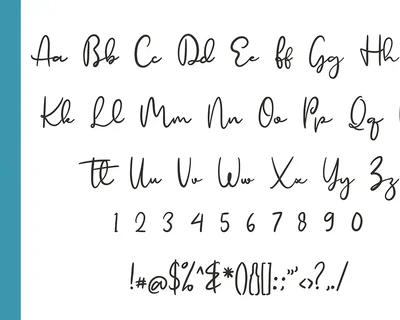 Aa Bb Cc Dd Ee ff Gg Hh
Kk Ll Mm Nn Oo Pp Qq
tt Uu Vv Ww Xx Yy Zz
1 2 3 4 5 6 7 8 9 0